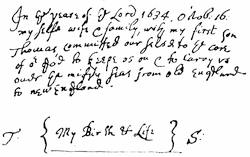 In yᵉ yeare of yᵉ Lord 1634. Octob. 16.
my selfe wife & family, with my first son
Thomas committed our selves to yᵉ care
of oʳ god to keepe us on & to carry us
ouer yᵉ mighty seas from old England
to new England.
T: { My Birth & Life } S: